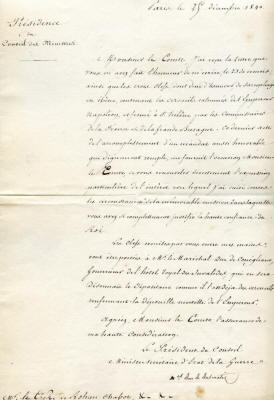 Paris le 25 décembre 1840
Présidence
du
Conseil des Ministres
Monsieur le Comte, J'ai reçu la lettre que
vous m'avez fait l'honneur de m'écrire, le 23 de ce mois,
ainsi que les trois clefs
en ébène, contenant les cercueils de l'Empereur
Napoléon, et fermé à Ste Hélène par les Commissaires
de la France et de la Grande Bretagne. Ce dernier acte
de l'accomplissement d'un mandat aussi honorable
que dignement rempli, me fournit l'occasion, Monsieur
le Comte, de vous renouveler l'expression
particulière de l'intérêt avec lequel j'ai suivi toutes
les circonstances de la mémorable mission dans laquelle
vous avez si complètement justifié la haute confiance du
Roi.
Les clefs remises par vous entre mes mains,
vont être déposées à Mr. le Maréchal Duc de Conegliano,
Gouverneur de l'hôtel royal des Invalides, qui en sera
désormais le dépositaire comme il l'est déjà du cercueil
renfermant la dépouille mortelle de l'Empereur.
Agréez, Monsieur le Comte, l'assurance de
ma haute considération.
Le Président du Conseil
Ministre secrétaire d'État de la Guerre
Mr. le Comte de Rohan Chabot, &. &.